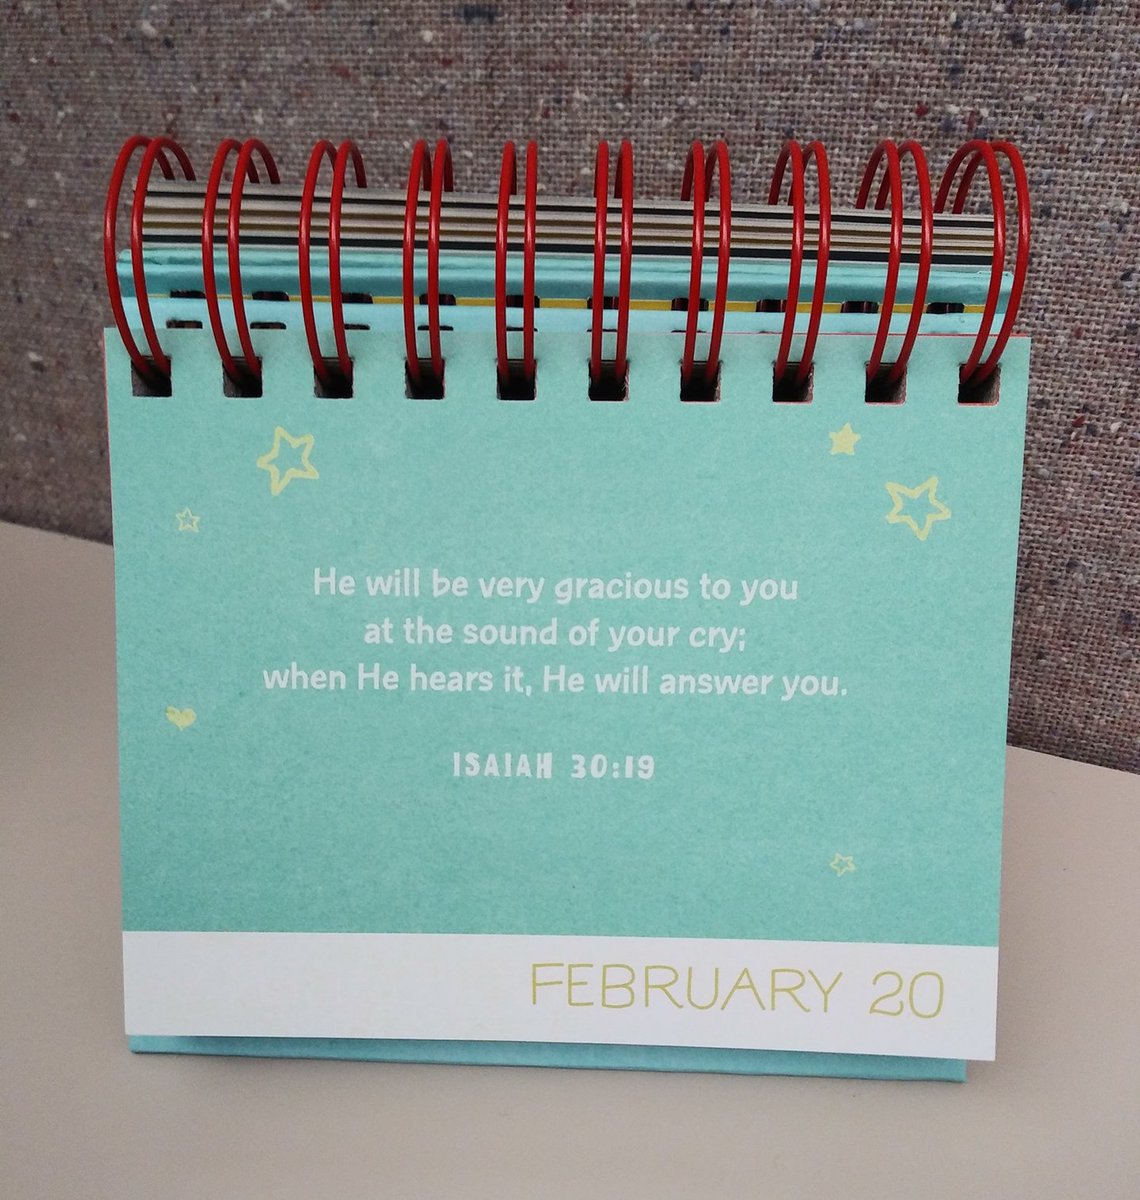 He will be very gracious to you
at the sound of your cry;
when He hears it, He will answer you.
ISAIAH 30:19
FEBRUARY 20